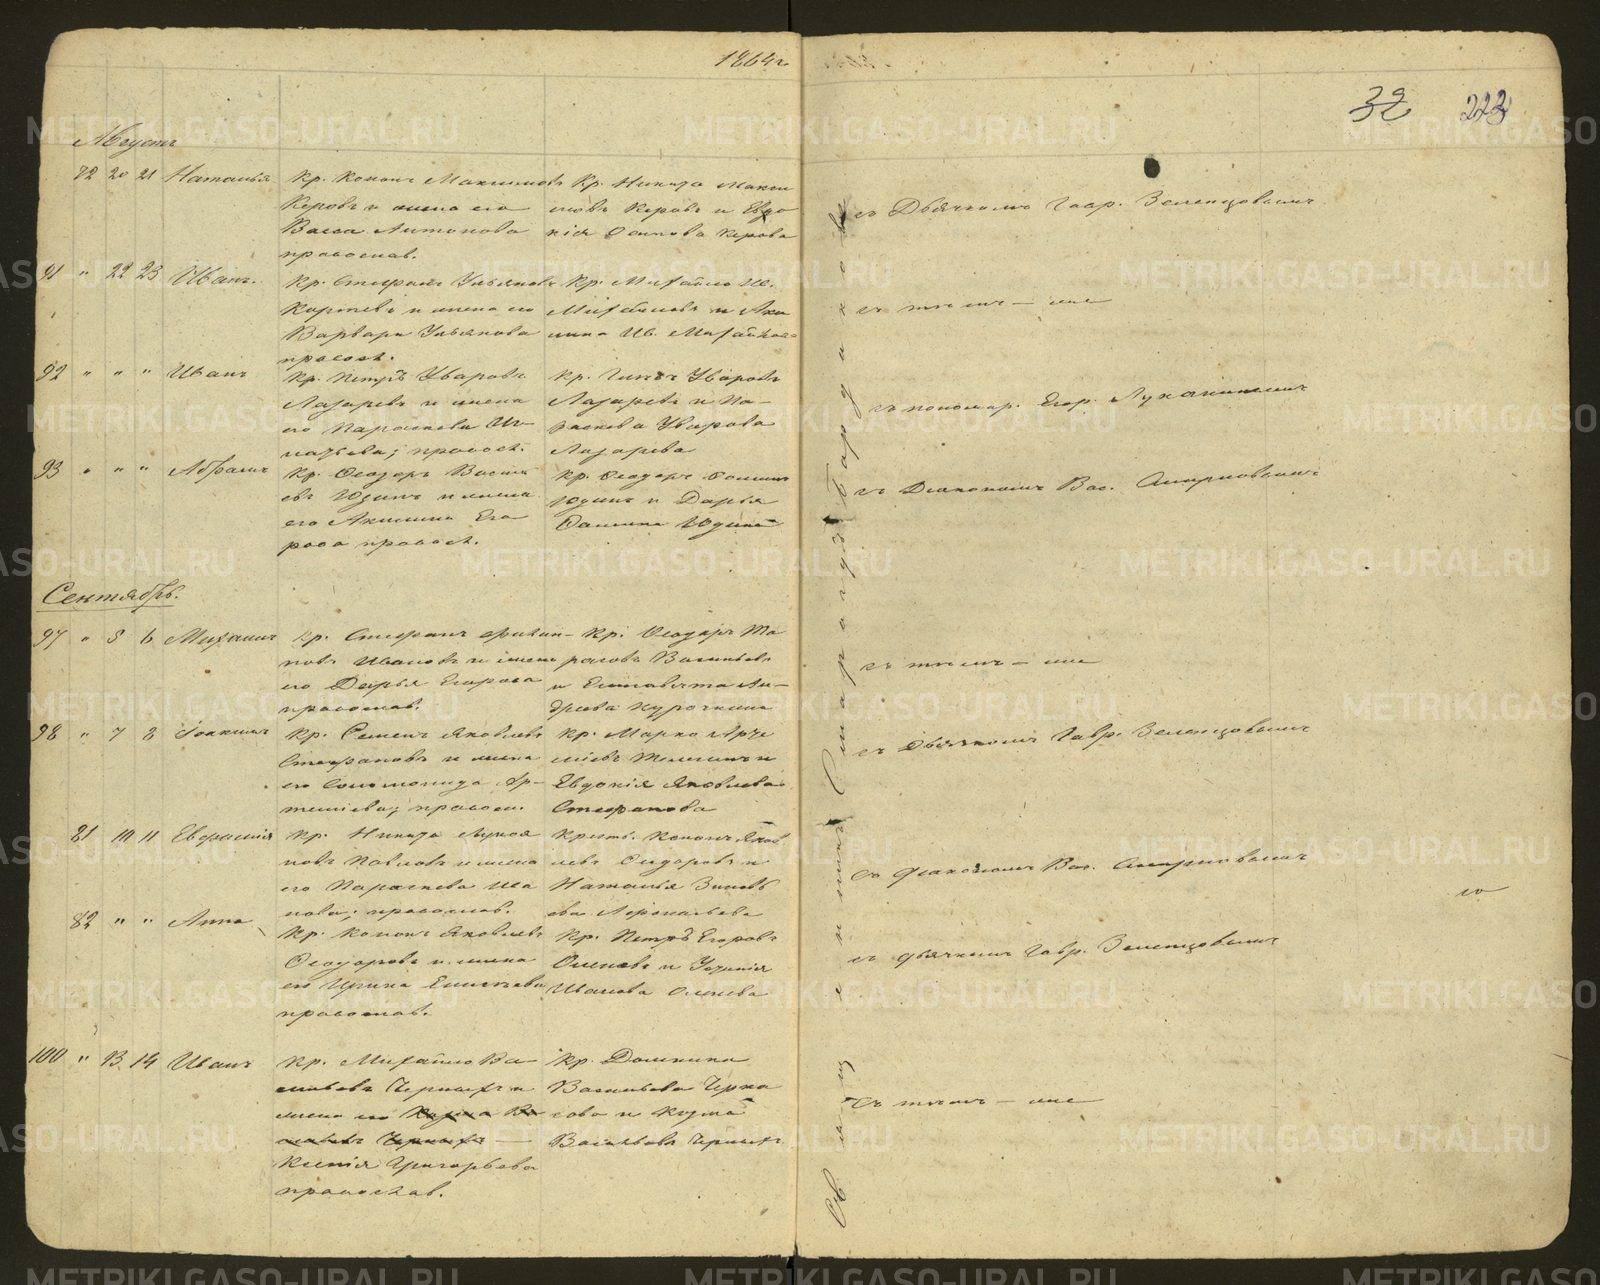 1864 г.
32 223
Августъ
72 20 21 Наталья
Кр. Кононъ Максимовъ
Керовъ и жена его
Васса Антонова
православ.
Кр. Никита Макси
мовъ Керовъ и Евдо
кія Осипова Керова
съ Дьячкомъ Гавр. Зеленцовымъ
91 " 22 23 Иванъ.
Кр. Стефанъ Ульяновъ
и жена его
Варвара Ульянова
правосл.
Кр. Михайло Ив.
Михайловъ и Аки
лина Ив. Михайлова
съ тѣмъ – же
92 " " " Иванъ
Кр. Петръ Уваровъ
Лазаревъ и жена
его Параскева Иг-
натьева; правосл.
Кр. Уваровъ
Лазаревъ и Па-
раскева Уварова
Лазарева
съ пономар. Егор. Луканинымъ
93 " " " Абрамъ
Кр. Ѳеодоръ Василь
евъ Юдинъ и жена
его Акилина Его
рова правосл.
Кр. Ѳеодоръ Ѳомин
Юдинъ и Дарья
Ѳомина Юдина
съ Діакономъ Вас. Смирновымъ
Сентябрь.
97 " 5 6 Михаилъ
Кр. Стефанъ
новъ Ивановъ и жена
его Дарья Егорова
православ.
Кр. Ѳеодоръ Та
расовъ Васильевъ
и Елизавета Ан-
дреева Курочкина
съ тѣмъ – же
98 " 7 8 Іоакимъ
Кр. Семенъ Яковлевъ
Стефановъ и жена
его Соломонида Ар-
темьева; правосл.
Кр. Марко Арте
мьевъ и
Евдокія Яковлева
Стефанова
съ Дьячкомъ Гавр. Зеленцовымъ
81 10 11 Евфросинія
Кр. Никита Лукоя
новъ Павловъ и жена
его Параскева Ива
нова; православ.
Крест. Кононъ Яков
левъ Сидоровъ и
Наталья Зиновь
ева
съ діакономъ Вас. Смирновымъ
82 " " Анна
Кр. Кононъ Яковлевъ
Ѳеодоровъ и жена
его Ирина Емельянова
православ.
Кр. Петръ Егоровъ
и Устинія
Иванова
съ дьячкомъ Гавр. Зеленцовымъ
100 " 13 14 Иванъ
Кр. Михайло Ва-
сильевъ Черныхъ и
жена его
Ксенія Григорьева
православ.
Кр. Домнина
Васильева Черка
сова и Кузма
Васильевъ Черныхъ
съ тѣмъ – же
Священникъ Стара